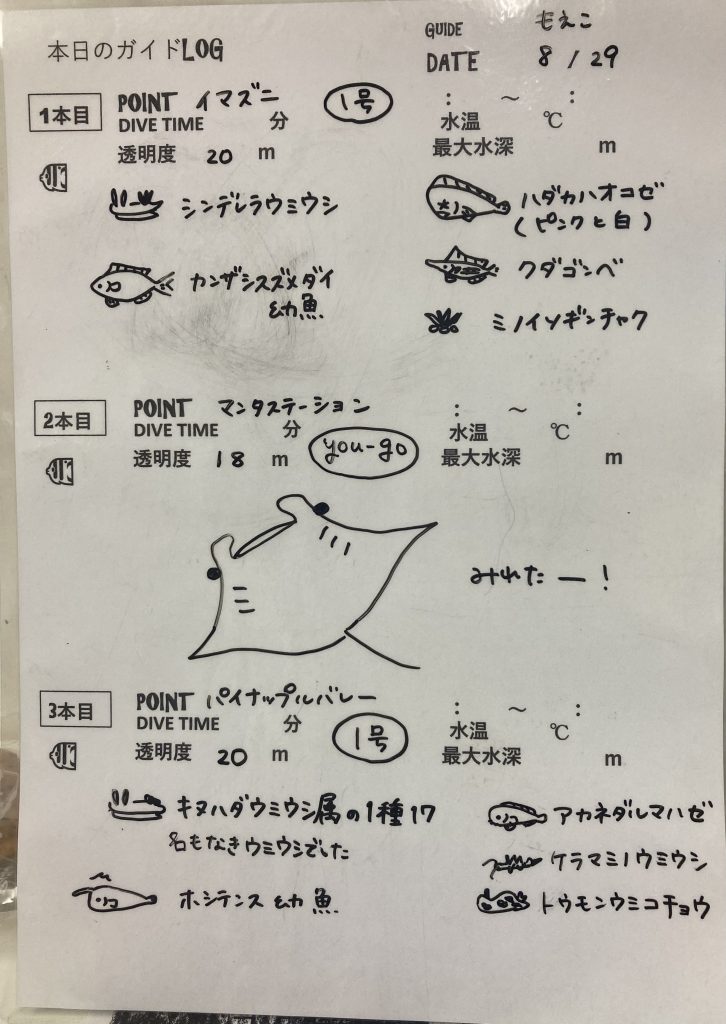 本日のガイドLOG
GUIDE もえこ
DATE 8 / 29
1本目
POINT イマズニ 1号
DIVE TIME 分
透明度 20 m
: ~ :
水温 ℃
最大水深 m
シンデレラウミウシ
カンザシスズメダイ
幼魚
ハダカハオコゼ
(ピンクと白)
クダゴンベ
ミノイソギンチャク
2本目
POINT マンタステーション
DIVE TIME 分
透明度 18 m you-go
: ~ :
水温 ℃
最大水深 m
みれたー!
3本目
POINT パイナップルバレー
DIVE TIME 分
透明度 20 m 1号
: ~ :
水温 ℃
最大水深 m
キヌハダウミウシ属の1種17
名もなきウミウシでした
ホシテンス幼魚
アカネダルマハゼ
ケラマミノウミウシ
トウモンウミコチョウ